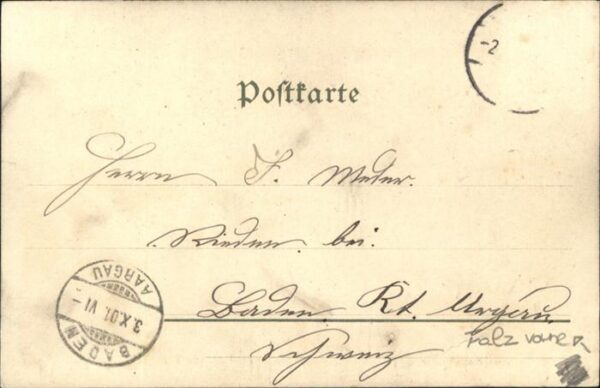 -2
Postkarte
Herrn J. Meder.
Rieden. bei.
Baden. Kt. Argau.
Schweiz
falz vorne
BADEN
3.X.01. VI-
AARGAU